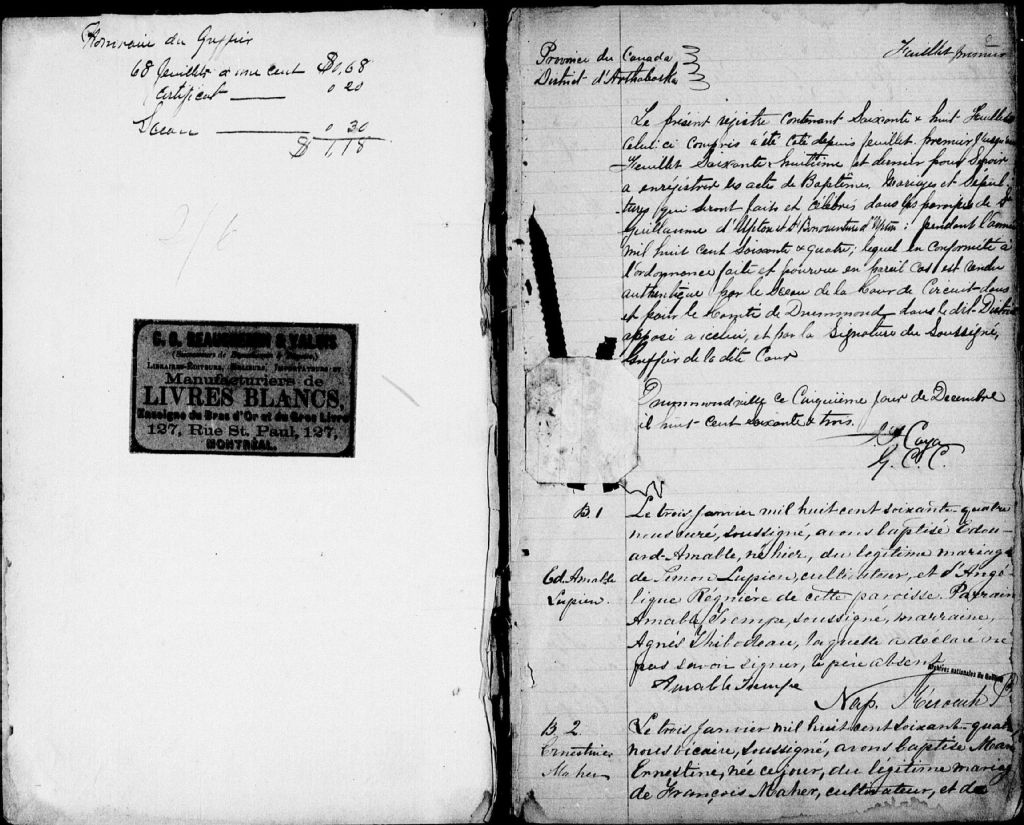 Honoraire du Greffier
68 feuillets a une cent $0,68
Certificat 0 20
Sceau 0 30
$ 1,18
C. O. BEAUCHEMIN & VALOIS
LIBRAIRES-ÉDITEURS, RELIEURS, IMPORTATEURS ET
Manufacturiers de
LIVRES BLANCS,
Enseigne du Bras d'Or et du Gros Livre
127, Rue St. Paul, 127,
MONTRÉAL.
Feuillet premier
Province du Canada
District d'Arthabaska
Le présent régistre contenant Soixante & huit Feuillets
celui ci compris a été coté depuis feuillet premier jusqu'au
Feuillet Soixante & huitième et dernier pour servir
a enrégistrer les actes de Baptêmes Mariages et Sépul-
tures qui seront faits et célébrés dans les paroisses de St
Guillaume d'Upton et St Bonaventure d'Upton : pendant l'année
mil huit cent soixante & quatre; lequel en conformité a
l'ordonnance faite et pourvue en pareil cas est rendu
authentique par le Sceau de la Cour de Circuit dans
et pour le Comté de Drummond dans le dit District
apposé a icelui, et par la Signature du Soussigné,
Greffier de la dite Cour
Drummondville ce Cinquième jour de Decembre
mil huit-Cent soixante & trois.
Caya
G. C. C.
B. 1
Ed. Amable
Lupien.
Le trois janvier mil huit cent soixante-quatre
nous curé, soussigné, avons baptisé Edou-
ard-Amable, né hier, du légitime mariage
de Simon Lupien, cultivateur, et d'Angé-
lique Régnière de cette paroisse. Parrain
Amable Trempe, soussigné, marraine,
Agnès Thibodeau, laquelle a déclaré ne
pas savoir signer, le père absent
Archives nationales du Québec
Amable Trempe
Nap. Kéroack Ptr
B. 2.
Ernestine
Maher
Le trois janvier mil huit cent soixante-quatre
nous vicaire, soussigné, avons baptisé Marie
Ernestine, née ce jour, du légitime mariage
de François Maher, cultivateur, et de